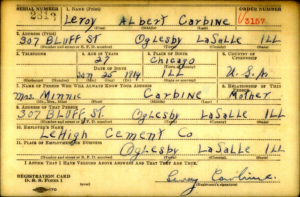 SERIAL NUMBER 1. NAME (Print) ORDER NUMBER
2313 Leroy Albert Carbine 3157
(First) (Middle) (Last)
2. ADDRESS (Print)
307 BLUFF ST. Oglesby LaSalle Ill
3. TELEPHONE 4. AGE IN YEARS 5. PLACE OF BIRTH 6. COUNTRY OF CITIZENSHIP
27 Chicago
DATE OF BIRTH
25 1914 Ill U.S.A.
7. NAME OF PERSON WHO WILL ALWAYS KNOW YOUR ADDRESS 8. RELATIONSHIP OF THAT PERSON
Mrs. Minnie Carbine Mother
9. ADDRESS OF THAT PERSON
307 BLUFF ST. Oglesby LaSalle Ill
10. EMPLOYER'S NAME
LeHigh Cement Co
11. PLACE OF EMPLOYMENT OR BUSINESS
Oglesby LaSalle Ill
I AFFIRM THAT I HAVE VERIFIED ABOVE ANSWERS AND THAT THEY ARE TRUE.
REGISTRATION CARD
D. S. S. FORM 1 Leroy Carbine
(Registrant's signature)